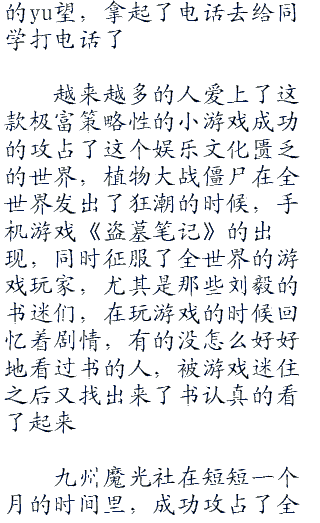 的yu望，拿起了电话去给同
学打电话了
越来越多的人爱上了这
款极富策略性的小游戏成功
的攻占了这个娱乐文化匮乏
的世界，植物大战僵尸在全
世界发出了狂潮的时候，手
机游戏《盗墓笔记》的出
现，同时征服了全世界的游
戏玩家，尤其是那些刘毅的
书迷们，在玩游戏的时候回
忆着剧情，有的没怎么好好
地看过书的人，被游戏迷住
之后又找出来了书认真的看
了起来
九州魔光社在短短一个
月的时间里，成功攻占了全